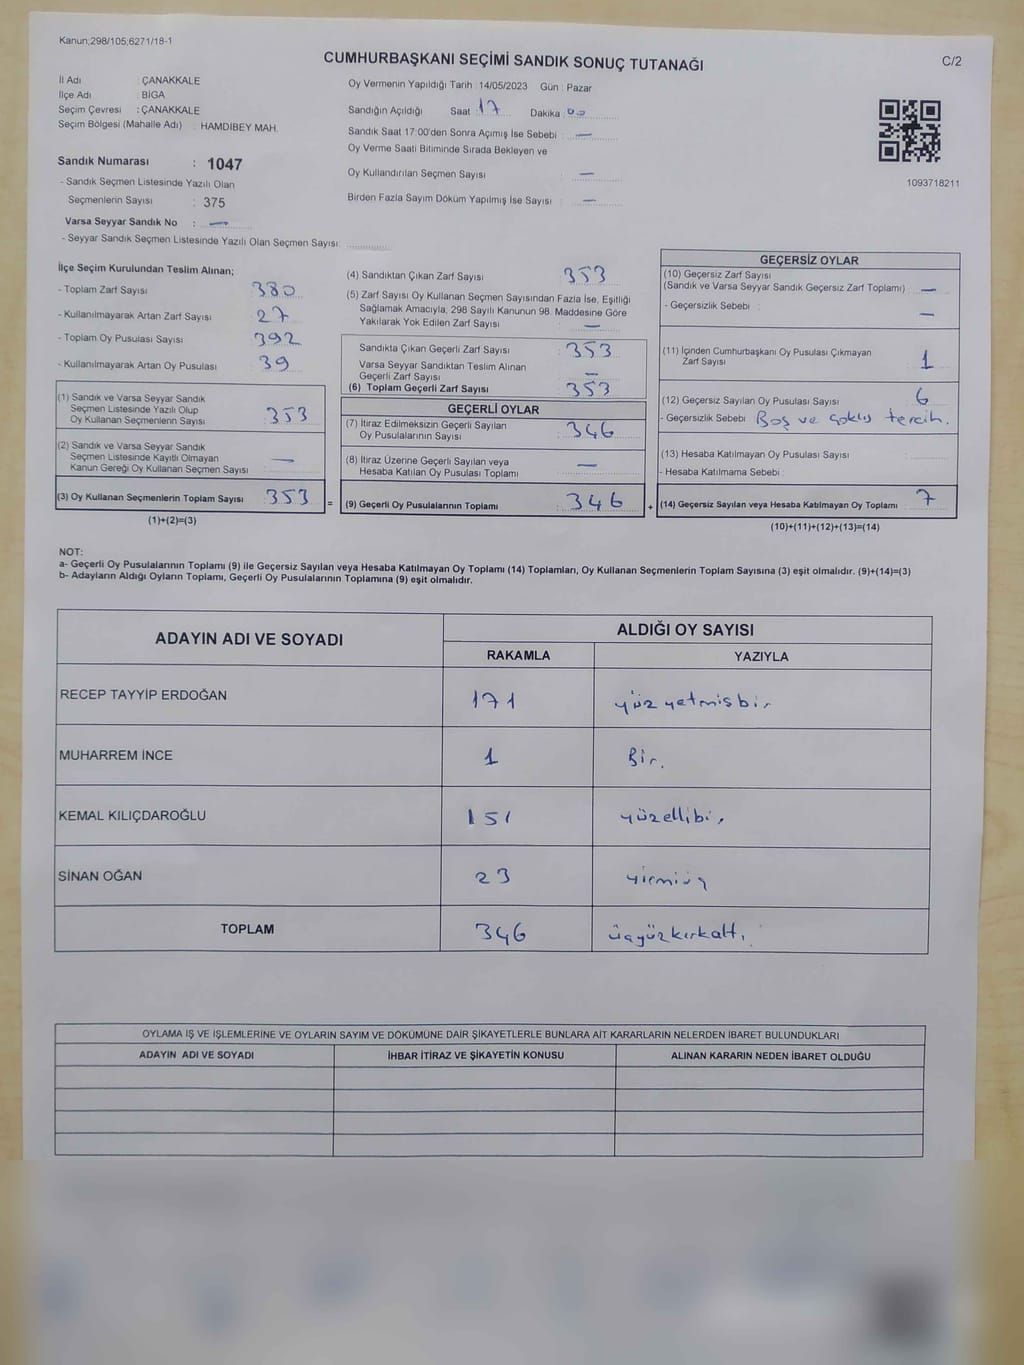 Kanun;298/105,6271/18-1
CUMHURBAŞKANI SEÇİMİ SANDIK SONUÇ TUTANAĞI
C/2
İl Adı : ÇANAKKALE
İlçe Adı : BİGA
Seçim Çevresi : ÇANAKKALE
Seçim Bölgesi (Mahalle Adı) : HAMDİBEY MAH.
Sandık Numarası : 1047
- Sandık Seçmen Listesinde Yazılı Olan
Seçmenlerin Sayısı : 375
Varsa Seyyar Sandık No : —
- Seyyar Sandık Seçmen Listesinde Yazılı Olan Seçmen Sayısı:
Oy Vermenin Yapıldığı Tarih : 14/05/2023 Gün : Pazar
Sandığın Açıldığı Saat 17 Dakika : 00
Sandık Saat 17:00'den Sonra Açımış İse Sebebi : —
Oy Verme Saati Bitiminde Sırada Bekleyen ve
Oy Kullandırılan Seçmen Sayısı : —
Birden Fazla Sayım Döküm Yapılmış İse Sayısı : —
1093718211
İlçe Seçim Kurulundan Teslim Alınan;
- Toplam Zarf Sayısı 380
- Kullanılmayarak Artan Zarf Sayısı 27
- Toplam Oy Pusulası Sayısı 392
- Kullanılmayarak Artan Oy Pusulası 39
(1) Sandık ve Varsa Seyyar Sandık
Seçmen Listesinde Yazılı Olup
Oy Kullanan Seçmenlerin Sayısı 353
(2) Sandık ve Varsa Seyyar Sandık
Seçmen Listesinde Kayıtlı Olmayan
Kanun Gereği Oy Kullanan Seçmen Sayısı —
(3) Oy Kullanan Seçmenlerin Toplam Sayısı 353
(1)+(2)=(3)
=
(4) Sandıktan Çıkan Zarf Sayısı 353
(5) Zarf Sayısı Oy Kullanan Seçmen Sayısından Fazla İse, Eşitliği
Sağlamak Amacıyla, 298 Sayılı Kanunun 98. Maddesine Göre
Yakılarak Yok Edilen Zarf Sayısı —
Sandıkta Çıkan Geçerli Zarf Sayısı 353
Varsa Seyyar Sandıktan Teslim Alınan
Geçerli Zarf Sayısı —
(6) Toplam Geçerli Zarf Sayısı 353
GEÇERLİ OYLAR
(7) İtiraz Edilmeksizin Geçerli Sayılan
Oy Pusulalarının Sayısı 346
(8) İtiraz Üzerine Geçerli Sayılan veya
Hesaba Katılan Oy Pusulası Toplamı —
(9) Geçerli Oy Pusulalarının Toplamı 346
+
GEÇERSİZ OYLAR
(10) Geçersiz Zarf Sayısı
(Sandık ve Varsa Seyyar Sandık Geçersiz Zarf Toplamı) —
- Geçersizlik Sebebi : —
(11) İçinden Cumhurbaşkanı Oy Pusulası Çıkmayan
Zarf Sayısı 1
(12) Geçersiz Sayılan Oy Pusulası Sayısı 6
- Geçersizlik Sebebi Boş ve çoklu tercih.
(13) Hesaba Katılmayan Oy Pusulası Sayısı
- Hesaba Katılmama Sebebi :
(14) Geçersiz Sayılan veya Hesaba Katılmayan Oy Toplamı 7
(10)+(11)+(12)+(13)=(14)
NOT:
a- Geçerli Oy Pusulalarının Toplamı (9) ile Geçersiz Sayılan veya Hesaba Katılmayan Oy Toplamı (14) Toplamları, Oy Kullanan Seçmenlerin Toplam Sayısına (3) eşit olmalıdır. (9)+(14)=(3)
b- Adayların Aldığı Oyların Toplamı, Geçerli Oy Pusulalarının Toplamına (9) eşit olmalıdır.
ADAYIN ADI VE SOYADI
ALDIĞI OY SAYISI
RAKAMLA YAZIYLA
RECEP TAYYİP ERDOĞAN 171 yüzyetmişbir
MUHARREM İNCE 1 Bir.
KEMAL KILIÇDAROĞLU 151 yüzellibir
SİNAN OĞAN 23 yirmiüç
TOPLAM 346 üçyüzkırkaltı
OYLAMA İŞ VE İŞLEMLERİNE VE OYLARIN SAYIM VE DÖKÜMÜNE DAİR ŞİKAYETLERLE BUNLARA AİT KARARLARIN NELERDEN İBARET BULUNDUKLARI
ADAYIN ADI VE SOYADI İHBAR İTİRAZ VE ŞİKAYETİN KONUSU ALINAN KARARIN NEDEN İBARET OLDUĞU